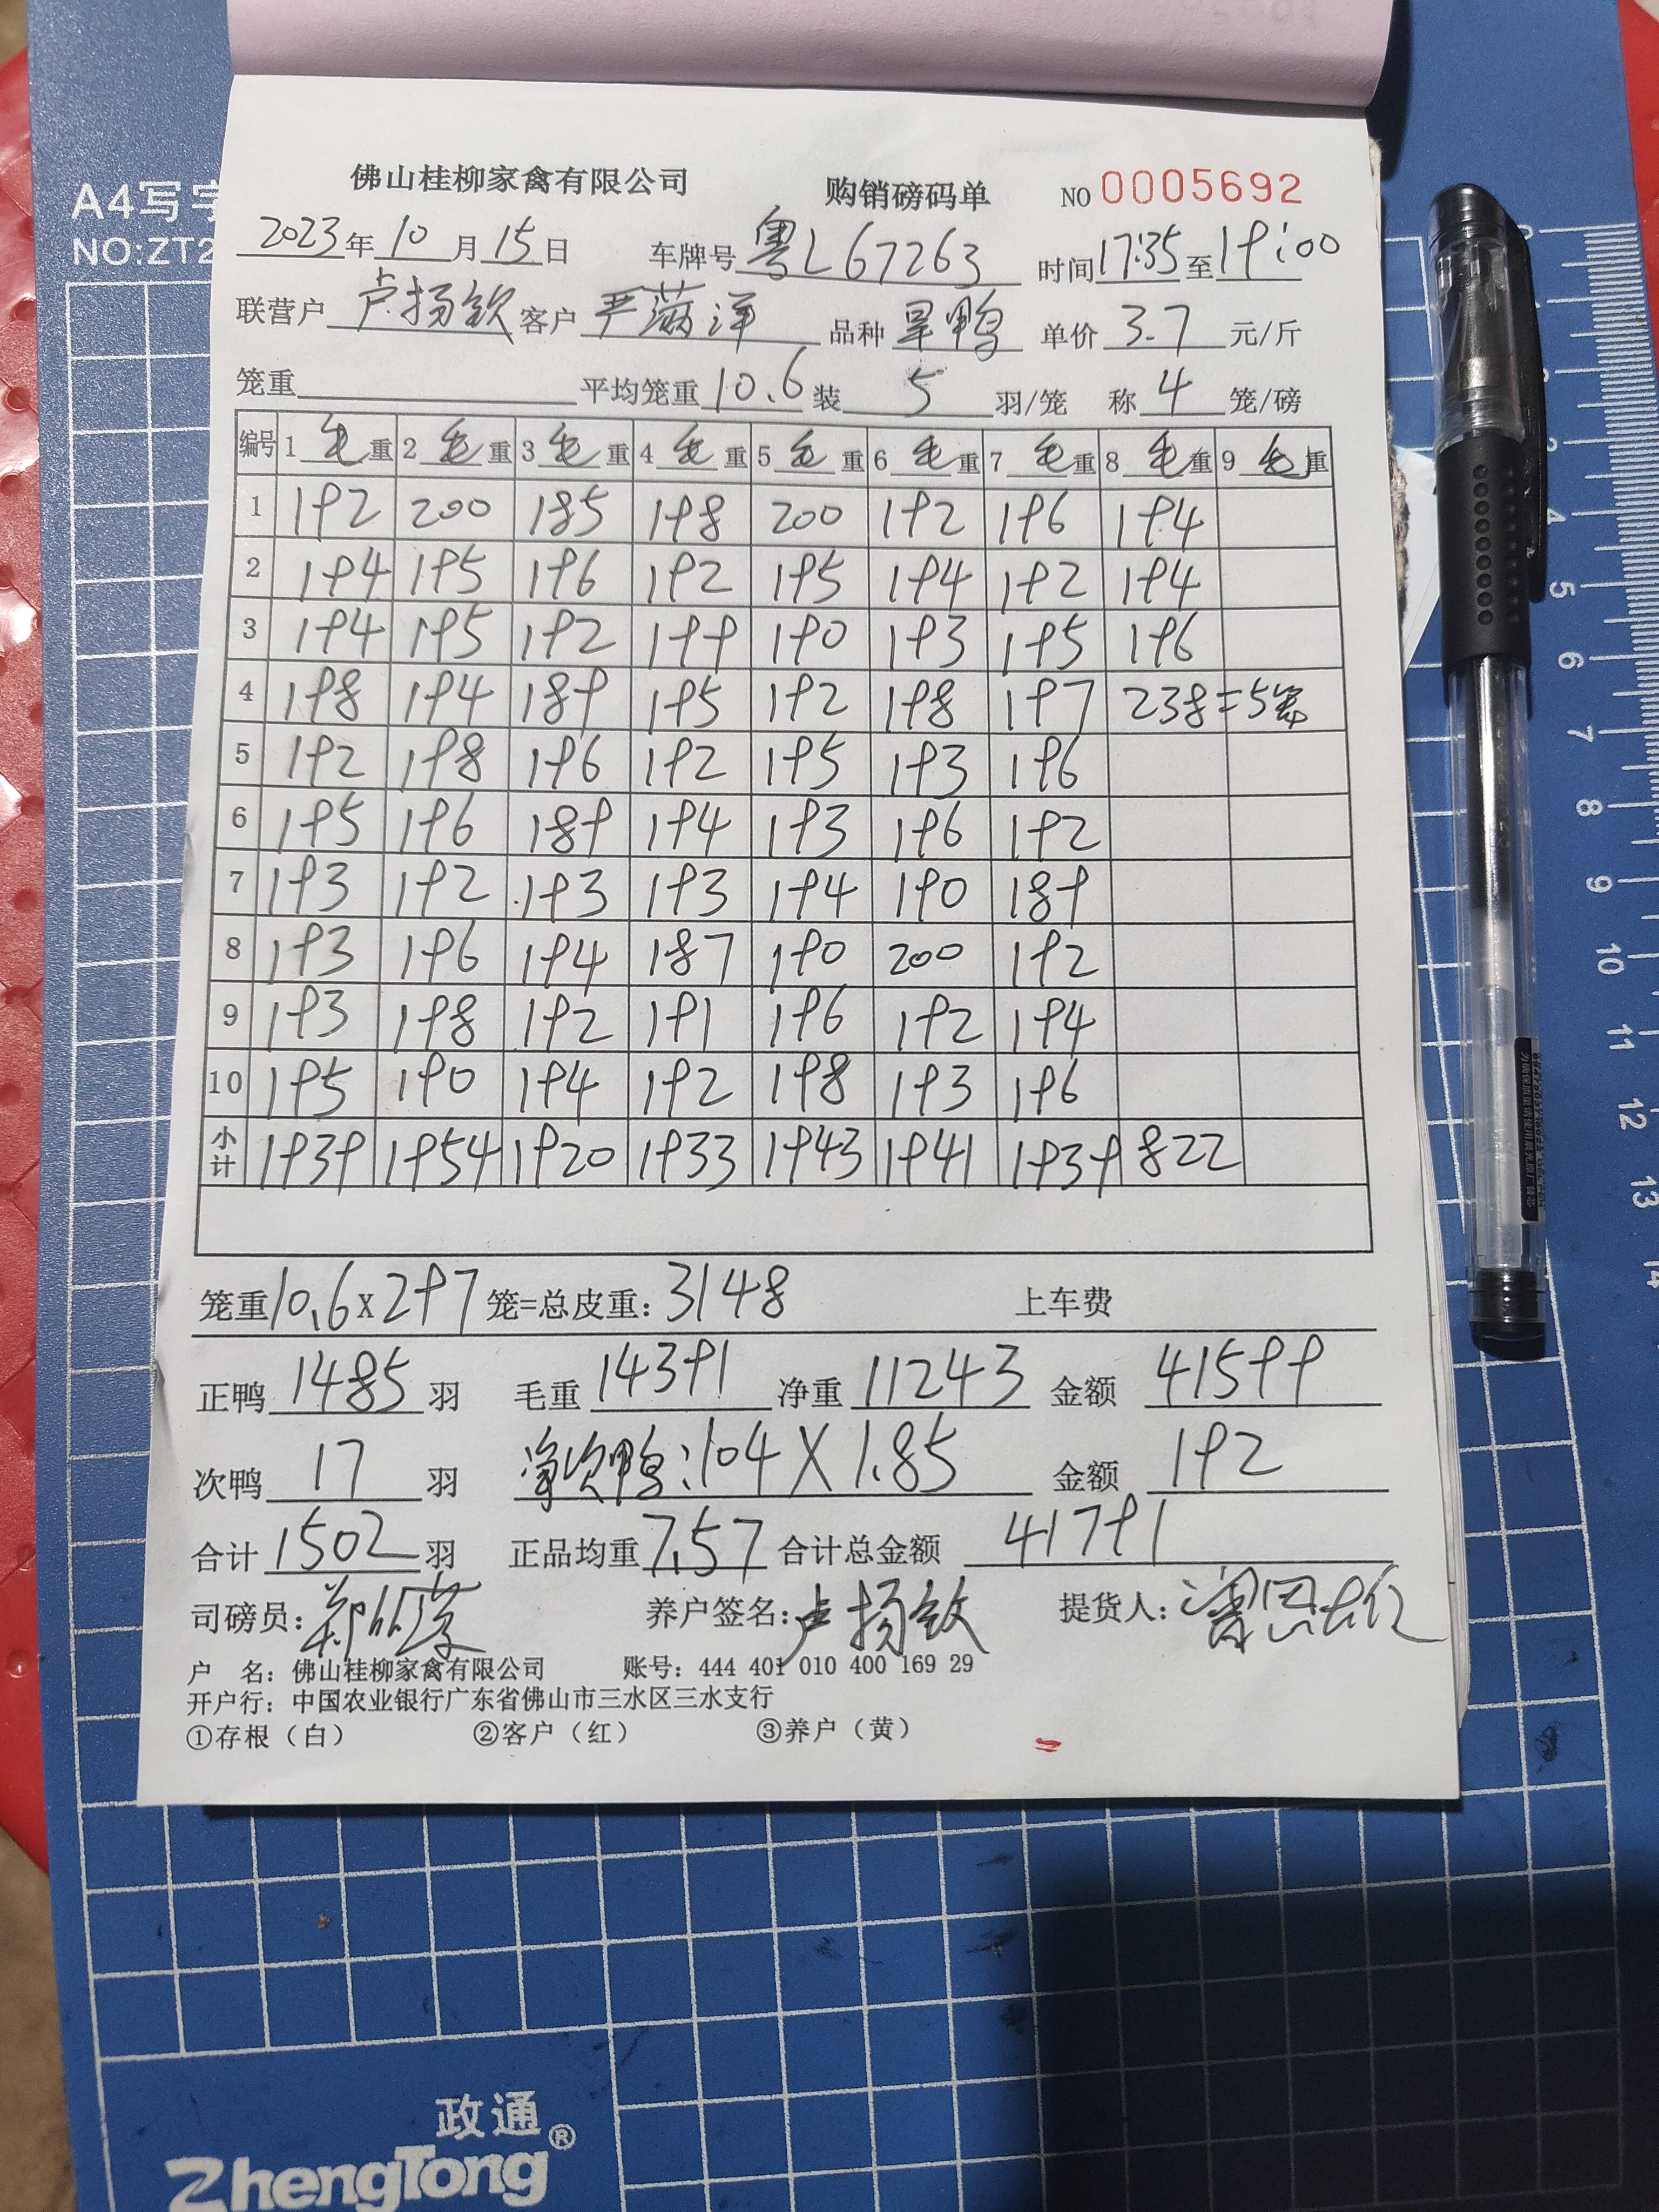 A4写字
NO:ZT2
佛山桂柳家禽有限公司 购销磅码单 NO 0005692
2023年10月15日 车牌号 粤L67263 时间17:35至19:00
联营户 卢扬钦 客户 严荡洋 品种 旱鸭 单价 3.7 元/斤
笼重 平均笼重 10.6 装 5 羽/笼 称 4 笼/磅
编号 1 毛重 2 毛重 3 毛重 4 毛重 5 毛重 6 毛重 7 毛重 8 毛重 9 毛重
1 192 200 185 198 200 192 196 194
2 194 195 196 192 195 194 192 194
3 194 195 192 199 190 193 195 196
4 198 194 189 195 192 198 197 238=5笼
5 192 198 196 192 195 193 196
6 195 196 189 194 193 196 192
7 193 192 193 193 194 190 189
8 193 196 194 187 190 200 192
9 193 198 192 191 196 192 194
10 195 190 194 192 198 193 196
小计 1939 1954 1920 1933 1943 1941 1939 822
笼重10.6x297笼=总皮重: 3148 上车费
正鸭 1485 羽 毛重 14391 净重 11243 金额 41599
次鸭 17 羽 净次鸭:104X1.85 金额 192
合计 1502 羽 正品均重 7.57 合计总金额 41791
司磅员: 养户签名: 卢扬钦 提货人:
户 名: 佛山桂柳家禽有限公司 账号: 444 401 010 400 169 29
开户行: 中国农业银行广东省佛山市三水区三水支行
①存根（白） ②客户（红） ③养户（黄）
政通®
ZhengTong